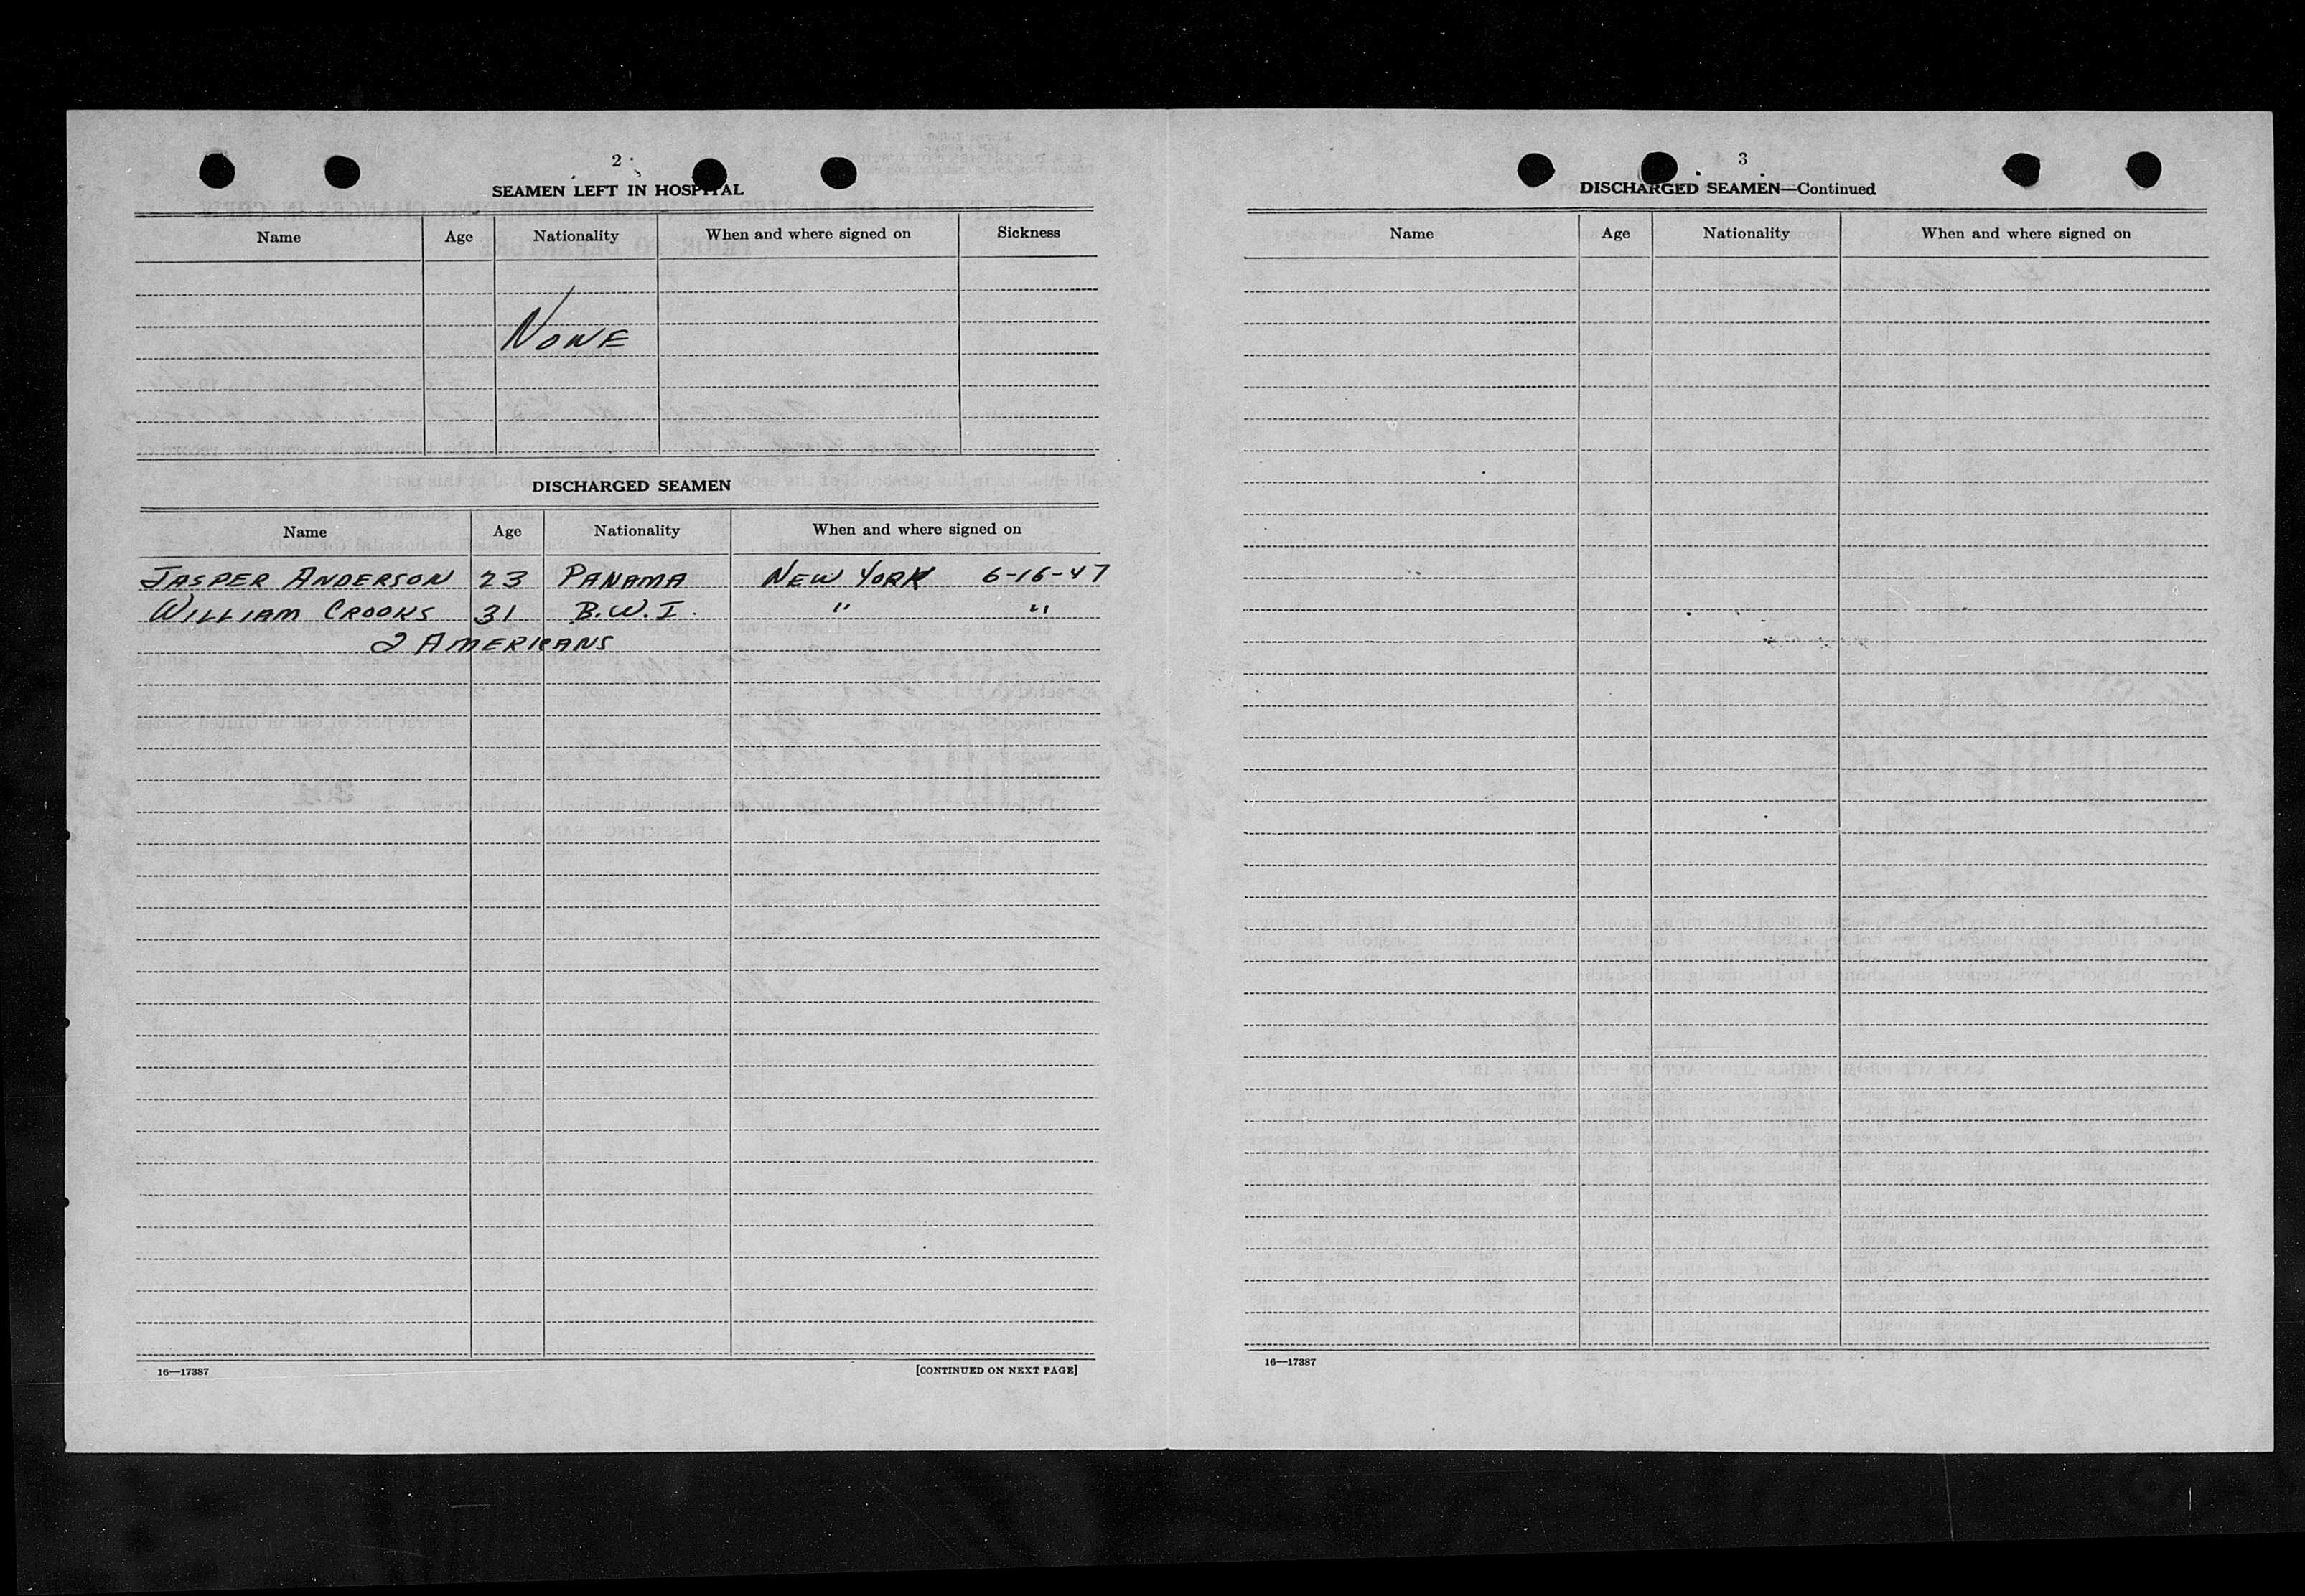 2
SEAMEN LEFT IN HOSPITAL
Name Age Nationality When and where signed on Sickness
NONE
DISCHARGED SEAMEN
Name Age Nationality When and where signed on
JASPER ANDERSON 23 PANAMA NEW YORK 6-16-47
WILLIAM CROOKS 31 B.W.I. " "
2 AMERICANS
16—17387 [CONTINUED ON NEXT PAGE]
3
DISCHARGED SEAMEN—Continued
Name Age Nationality When and where signed on
16—17387